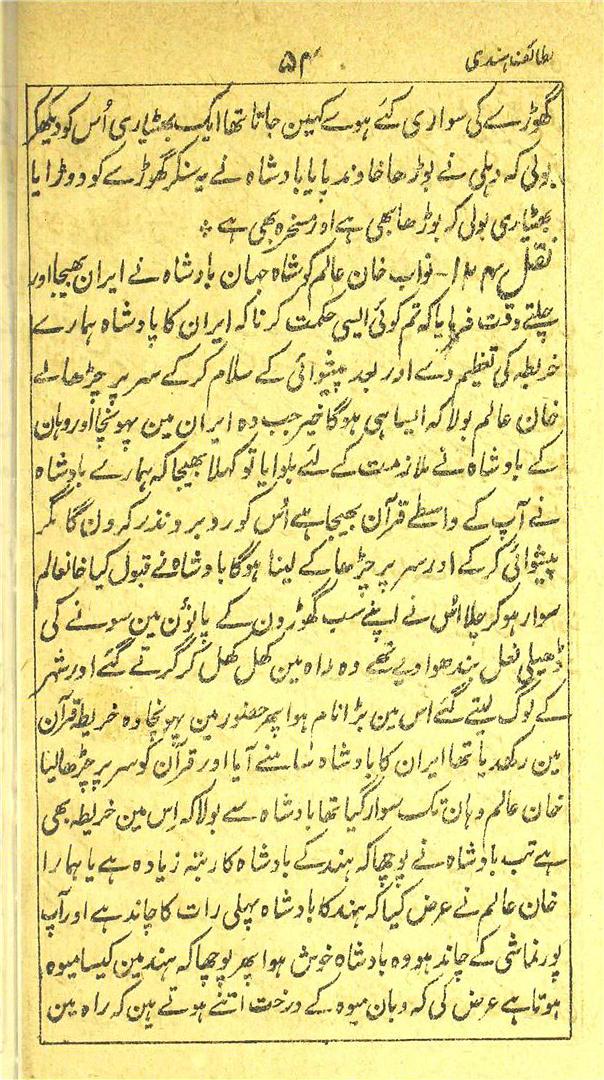 لطائف ہندی ۵۴
گھوڑے کی سواری کئے ہوے کہین جاتا تھا ایک بھٹیاری اُس کو دیکھکر
بولی کہ دہلی نے بوڑھا خاوند پایا بادشاہ نے یہ سنکر گھوڑے کو دوڑایا
بھٹیاری بولی کہ بوڑھا بھی ہے اور مسخرہ بھی ہے ٭
نقل ۱۴۴- نواب خان عالم کو شاہ جہان بادشاہ نے ایران بھیجا اور
چلتے وقت فرمایا کہ تم کوئی ایسی حکمت کرنا کہ ایران کا پادشاہ ہمارے
خریطہ کی تعظیم دے اور بعد پیشوائی کے سلام کرکے سر پر چڑھائے
خان عالم بولا کہ ایسا ہی ہوگا خیر جب وہ ایران مین پہونچا اور وہان
کے بادشاہ نے ملازمت کے لئے بلوایا تو کہلا بھیجا کہ ہمارے بادشاہ
نے آپ کے واسطے قرآن بھیجا ہے اُس کو روبرو نذر کرون گا مگر
پیشوائی کرکے اور سر پر چڑھا کے لینا ہوگا بادشاہ نے قبول کیا خانعالم
سوار ہوکر چلا اُس نے اپنے سب گھوڑون کے پائون مین سونے کی
ڈھیلی نعل بندھوا دیے تھے وہ راہ مین کھل کھل کر گرتے گئے اور شہر
کے لوگ لیتے گئے اس مین بڑا نام ہوا پھر حضور مین پہونچا وہ خریطہ قرآن
مین رکھدیا تھا ایران کا بادشاہ سامنے آیا اور قرآن کو سر پر چڑھا لیا
خان عالم وہان تک سوار گیا تھا بادشاہ سے بولا کہ اِس مین خریطہ بھی
ہے تب بادشاہ نے پوچھا کہ ہند کے بادشاہ کا رتبہ زیادہ ہے یا ہمارا
خان عالم نے عرض کیا کہ ہند کا بادشاہ پہلی رات کا چاند ہے اور آپ
پورنماشی کے چاند ہو وہ بادشاہ خوش ہوا پھر پوچھا کہ ہند مین کیسا میوہ
ہوتا ہے عرض کی کہ وہان میوہ کے درخت اتنے ہوتے ہین کہ راہ مین